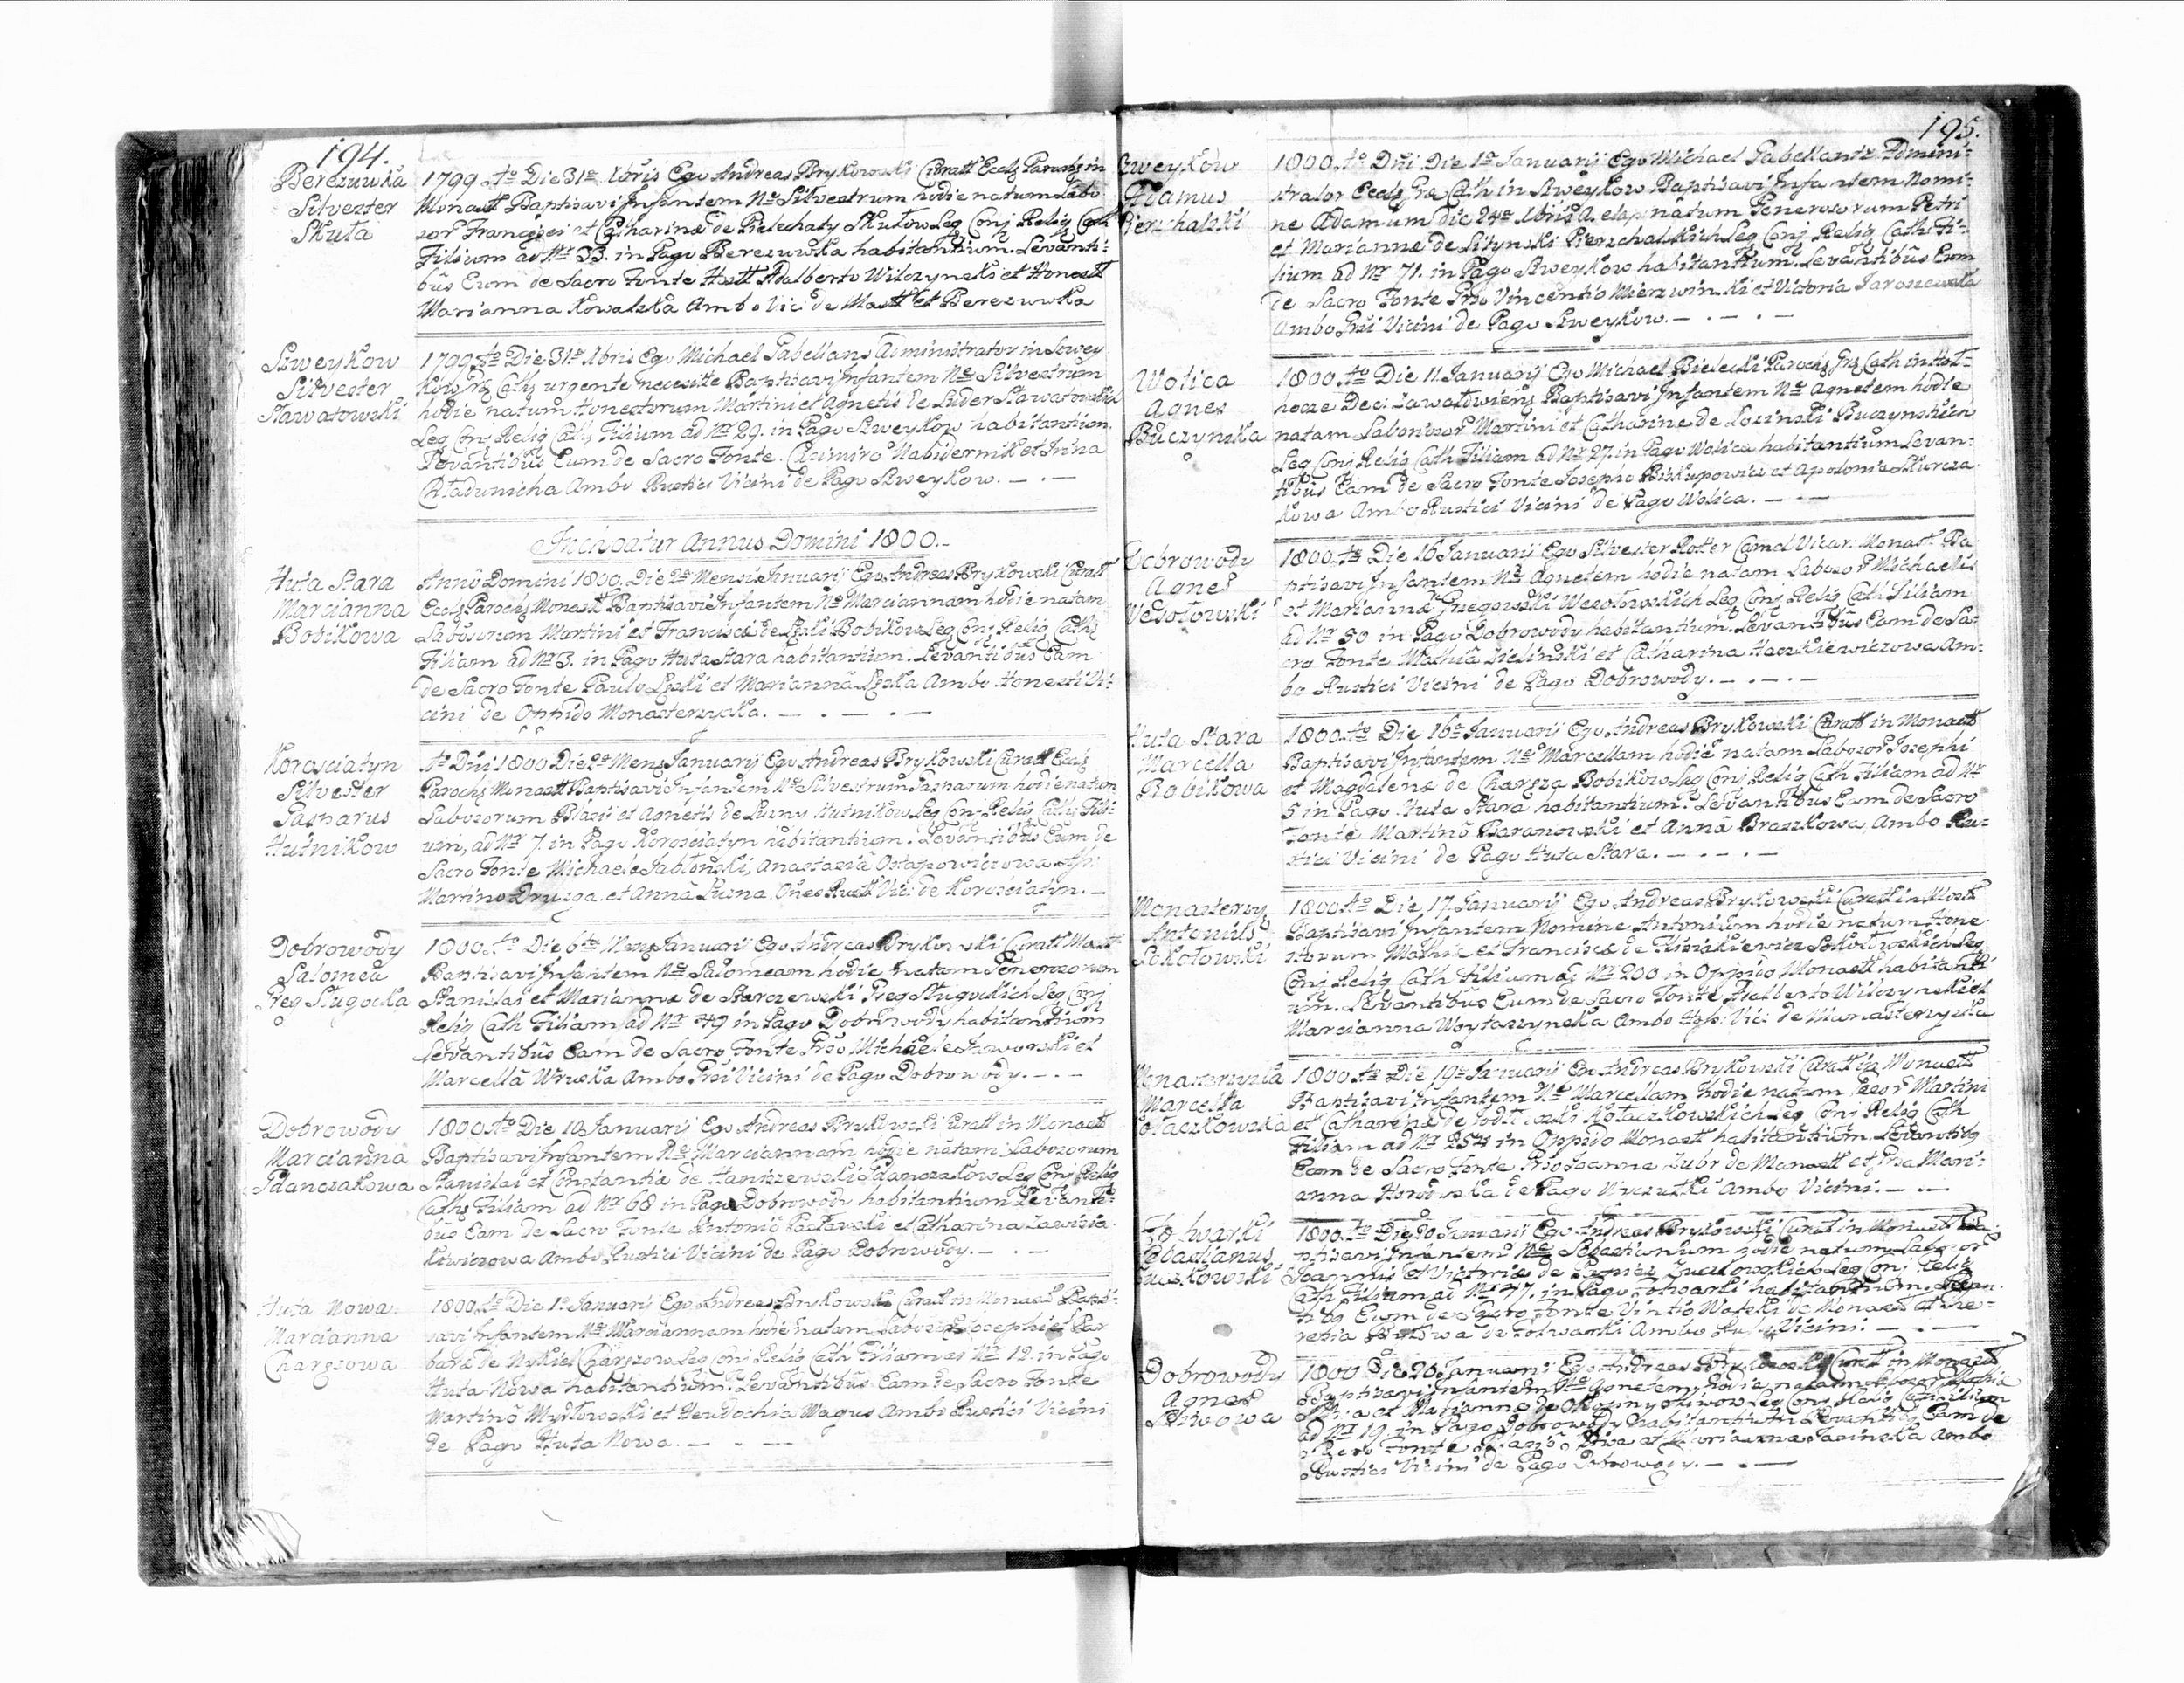 194.
Berezuwka
Silvester
Skuła
1799 Ao Die 31a Xbris Ego Andreas Brykowski Curatt Eccls Parochs in
Monastt Baptisavi Infantem Ne Silvestrum hodie natum Labo
ror Francisci et Catharinæ de Pielechaty Skułow Leg Conj Relig Cath
Filium ad Nr 33. in Pago Berezuwka habitantium. Levanti-
bus Eum de Sacro Fonte Hstt Adalberto Wilczynski et Honestt
Marianna Kowalska Ambo Vic de Mastt et Berezuwka
Szweykow
Silvester
Sławatowski
1799 Ao Die 31a Xbris Ego Michael Gabellans Administrator in Szwey
Kow Gr Caths urgente necessitte Baptisavi Infantem Ne Silvestrum
hodie natum Honestorum Martini et Agnetis de Luder
Leg Conj Relig Caths Filium ad Nr 29. in Pago Szweykow habitantium.
Levantibus Eum de Sacro Fonte. Casimiro Nabidernik et Irina
Ambo Rustici Vicini de Pago Szweykow. — . —
Inchoatur Annus Domini 1800.
Huta Stara
Marcianna
Bobikowa
Anno Domini 1800. Die 2a Mensis Januarij Ego Andreas Brykowski Curatt
Eccls Parochs Monastt Baptisavi Infantem Ne Marciannam hodie natam
Laborsorum Martini et Francisca de Bobikow Leg Conj Relig Caths
Filiam ad Nr 3. in Pago Huta Stara habitantium. Levantibus Eam
de Sacro Fonte Paulo et Marianna Ambo Honesti Vi-
cini de Oppido Monasterzyska. — . — . —
Korosciatyn
Silvester
Hutnikow
Ao Dni 1800 Die 2a Mens Januarij Ego Andreas Brykowski Curatt Eccls
Parochs Monastt Baptisavi Infantem Ne Silvestrum hodie natum
Laborsorum Blasii et Agnetis de Luzny Hutnikow Leg Conj Relig Caths Fili-
um, ad Nr 7. in Pago Korosciatyn habitantium. Levantibus Eum de
Sacro Fonte Michaele Jabłonski, Anastasia Ostapowiczowa
Martino Druzga. et Anna Luzna, Vic: de Korosciatyn. —
Dobrowody
Salomea
1800. Ao Die 6ta Mens Januarij Ego Andreas Brykowski Curatt Mastt
Baptisavi Infantem Ne Salomeam hodie natam Generosorum
Stanislai et Mariannæ de Starczewski Leg Conj
Relig Cath Filiam ad Nr 49 in Pago Dobrowody habitantium
Levantibus Eam de Sacro Fonte Gnso Michaele Jaworski et
Marcella Wruska Ambo Gnsi Vicini de Pago Dobrowody. — . —
Dobrowody
Marcianna
Gdanczakowa
1800. Ao Die 10 Januarij Ego Andreas Brykowski Curatt in Monastt
Baptisavi Infantem Ne Marciannam hodie natam Laborsorum
Stanislai et Constantia de Haniszewski Gdanczakow Leg Conj Relig
Caths Filiam ad Nr 68 in Pago Dobrowody habitantium Levanti-
bus Eam de Sacro Fonte Antonio et Catharina
Ambo Rustici Vicini de Pago Dobrowody. — . —
Huta Nowa.
Marcianna
Chargzowa
1800. Ao Die 1a Januarij Ego Andreas Brykowski Curatt in Monastt Bapti-
savi Infantem Ne Marciannam hodie natam Josephi et Bar
baræ de Nykiel Leg Conj Relig Cath Filiam ad Nr 12. in Pago
Huta Nowa habitantium. Levantibus Eam de Sacro Fonte
Martino Mysłowski et Heudochia Magus Ambo Rustici Vicini
de Pago Huta Nowa. — . —
195.
Szweykow
Adamus
Pierzchalski
1800. Ao Dni Die 1a Januarij Ego Michael Gabellants Admini-
strator Eccls Gra Cath in Szweykow Baptisavi Infantem Nomi-
ne Adamum Die 24a Xbris A. elap: natum Generosorum Petri
et Mariannæ de Litynski Pierzchalskich Leg Conj Relig Cath Fi-
lium ad Nr 71. in Pago Szweykow habitantium. Levantibus Eum
de Sacro Fonte Gnso Vincentio Mierzwinski et Victoria Jaroszewska
Ambo Gnsi Vicini de Pago Szweykow. — . — . —
Wolica
Agnes
Buczynska
1800. Ao Die 11. Januarij Ego Michael Bielecki Parochs Grs Cath in Hol-
hocze Dec: Baptisavi Infantem Ne Agnetem hodie
natam Martini et Catharinæ de Lozinski Buczynskich
Leg Conj Relig Cath Filiam ad Nr 27. in Pago Wolica habitantium Levan-
tibus Eam de Sacro Fonte Josepho Biskupowicz et Apolonia Skurcza
kowa Ambo Rustici Vicini de Pago Wolica. — . —
Dobrowody
Agnes
Wesołowski
1800. Ao Die 16 Januarij Ego Silvester Rotter Vicar: Monast Ba
ptisavi Infantem Ne Agnetem hodie natam Michaelis
et Mariannæ Gregowski Wesołowskich Leg Conj Relig Cath Filiam
ad Nr 50 in Pago Dobrowody habitantium. Levantibus Eam de Sa-
cro Fonte Mathia Zielinski et Catharina Haczkiewiczowa Am-
bo Rustici Vicini de Pago Dobrowody. — . — . —
Huta Stara
Marcella
Bobikowa
1800. Ao Die 16a Januarij Ego Andreas Brykowski Curatt in Monastt
Baptisavi Infantem Ne Marcellam hodie natam Josephi
et Magdalenæ de Chargza Bobikow Leg Conj Relig Cath Filiam ad Nr
5 in Pago Huta Stara habitantium. Levantibus Eam de Sacro
Fonte Martino Baranowski et Anna Braszkowa, Ambo Ru-
stici Vicini de Pago Huta Stara. — . — . —
Monasterzy
Antonius
Sokołowski
1800 Ao Die 17. Januarij Ego Andreas Brykowski Curatt in Mastt
Baptisavi Infantem Nomine Antonium hodie natum Hone
storum Mathiæ et Franciscæ de Sokołowskich Leg
Conj Relig Cath Filium ad Nr 200 in Oppido Monastt habitanti
um. Levantibus Eum de Sacro Fonte Adalberto Wilczynski et
Marcianna Woytaszynska Ambo Vic: de Monasterzyska
Monasterzyska
Marcella
Kołaczkowska
1800. Ao Die 19a Januarij Ego Andreas Brykowski Curatt in Monastt
Baptisavi Infantem Ne Marcellam hodie natam Martini
et Catharinæ de Kołaczkowskich Leg Conj Relig Cath
Filiam ad Nr 254 in Oppido Monastt habitantium. Levantibs
Eam de Sacro Fonte Gnso Joanne Zubr de Monastt et Gnsa Mari-
anna de Pago Ambo Vicini. — . —
Folwarki
Sebastianus
1800. Ao Die 20 Januarij Ego Andreas Brykowski Curatt in Monastt Ba
ptisavi Infantem Ne Sebastianum hodie natum
Joannis et Victoriæ de Leg Conj Relig
Cath Filium ad Nr 47. in Pago Folwarki habitantium. Levan-
tibs Eum de Sacro Fonte de Monast et The-
resia de Folwarki Ambo Vicini. — . —
Dobrowody
Agnes
1800 Die 20. Januarij Ego Andreas Brykowski Curatt in Monastt
Baptisavi Infantem Ne Agnetem hodie natam
et Mariannæ de Leg Conj Relig Cath Filiam
ad Nr 19. in Pago Dobrowody habitantium Levantibs Eam de
Sacro Fonte et Marianna Ambo
Rustici Vicini de Pago Dobrowody. — . —